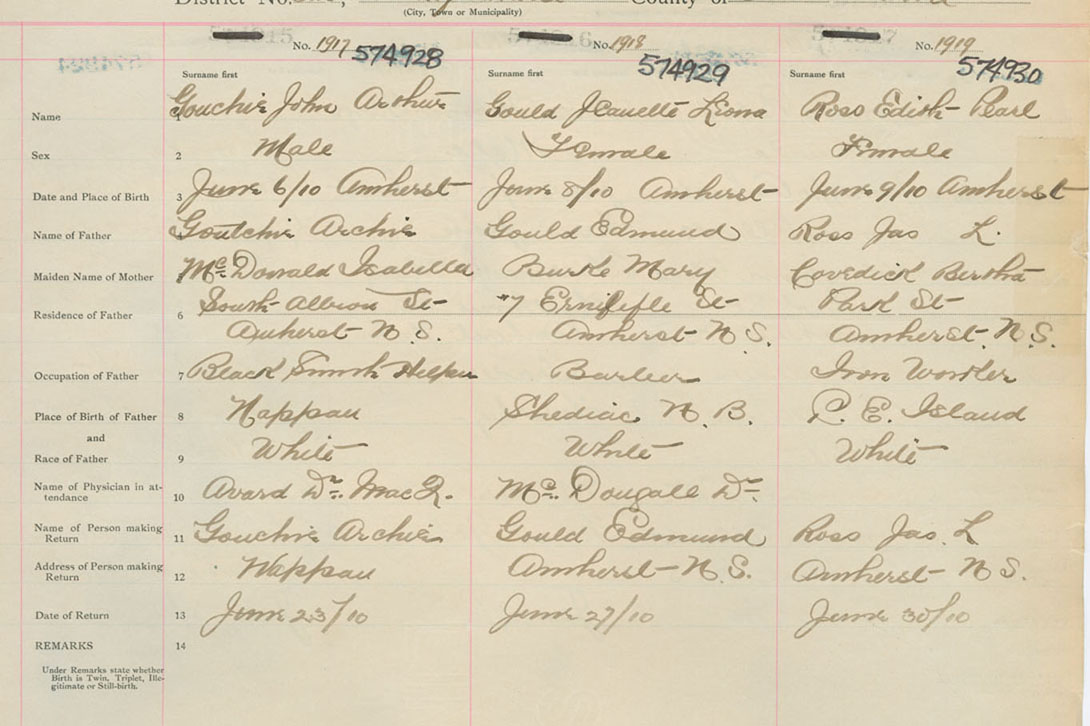 District No.
County of
(City, Town or Municipality)
No. 1917 574928
No. 1918 574929
No. 1919 574930
Surname first Surname first Surname first
Name Gouchie John Arthur Gould Jeanette Liona Ross Edith Pearl
Sex 2 Male Female Female
Date and Place of Birth 3 June 6/10 Amherst June 8/10 Amherst June 9/10 Amherst
Name of Father Goutchie Archie Gould Edmund Ross Jas L.
Maiden Name of Mother McDonald Isabella Burke Mary Bertha
Residence of Father 6 South Albion St 7 St Park St
Amherst N.S. Amherst N S. Amherst. N S.
Occupation of Father 7 Black Smith Helper Barber Iron Worker
Place of Birth of Father 8 Nappan Shediac N. B. P. E. Island
and
Race of Father 9 White White White
Name of Physician in at-
tendance 10 Avard Dr. Mc. Dougall Dr.
Name of Person making
Return 11 Gouchie Archie Gould Edmund Ross Jas. L
Address of Person making
Return 12 Nappan Amherst N. S. Amherst N S.
Date of Return 13 June 23/10 June 27/10 June 30/10
REMARKS 14
Under Remarks state whether
Birth is Twin, Triplet, Ille-
gitimate or Still-birth.